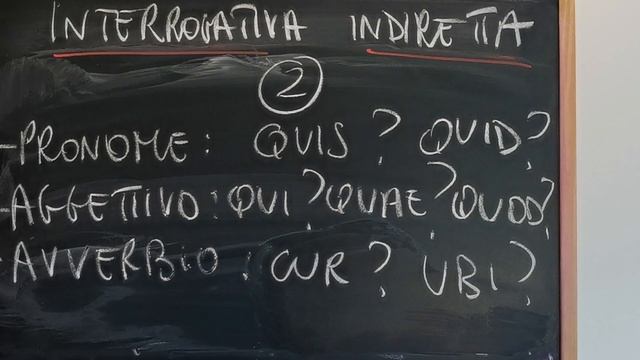 INTERROGATIVA INDIRETTA
2
- PRONOME: QUIS? QUID?
- AGGETTIVO: QUI? QUAE? QUOD?
- AVVERBIO: CUR? UBI?